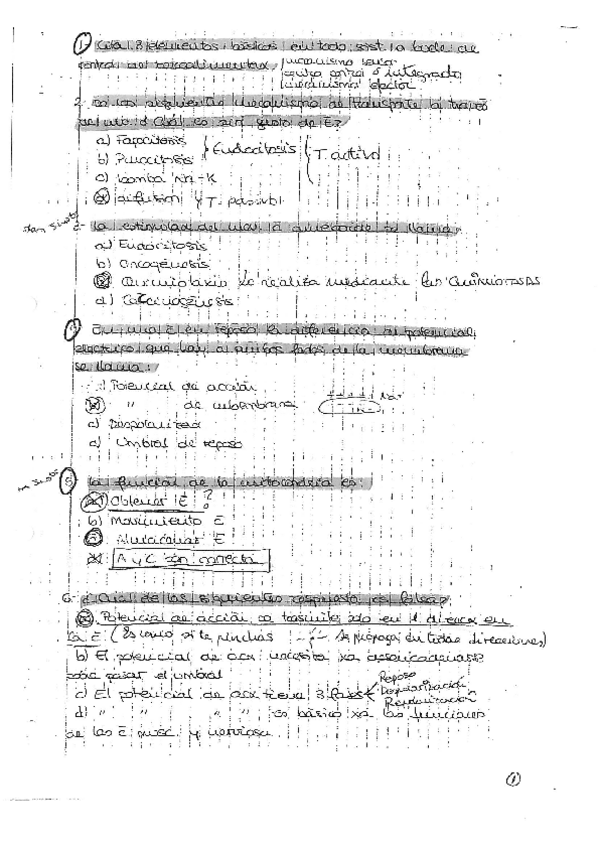 1. Cita 3 elementos básicos en todo sist. la bucle de
control del mecanismo sensor
equipo control o integrador
mecanismo efector
2. De los siguientes mecanismos de transporte a través
¿Cuál es sin gasto de E?
a) Fagocitosis
b) Pinocitosis
Endocitosis
T. activo
c) bomba Na-K
d) difusión T. pasivo
3- la del mov. se llama:
a) Endocitosis
b) Oncogénesis
c) Quimiotaxis se realiza mediante las
d)
4 En una cél en reposo la diferencia de potencial
eléctrico que hay a ambos lados de la membrana
se llama:
a) Potencial de acción
b) " de membrana
c) Despolaridad
d) Umbral de reposo
5 la función de la mitocondria es:
a) Obtener E ?
b) Movimiento
c) Almacenar E
d) A y C son correcta
6- ¿Cuál de las siguientes respuesta es falsa?
a) Potencial de acción se trasmite sólo en 1 direcc en
la (Es como si te pinchas se propaga en todas direcciones)
b) El potencial de acc necesita
para pasar el umbral
c) El potencial de acc tiene 3 fases
Reposo
Despolarización
Repolarización
d) " " " " es básico xa las funciones
de las musc y nerviosa.
1